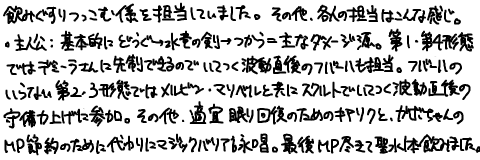 飲みぐすりつっこむ係を担当していました。その他、各人の担当はこんな感じ。
・主人公：基本的にどうぐ→水竜の剣→つかう＝主なダメージ源。第1・第4形態
ではデミーラさんに先制できるのでいてつく波動直後のフバーハも担当。フバーハの
いらない第2・3形態ではメルビン・マリベルと共にスクルトでいてつく波動直後の
守備力上げに参加。その他、適宜眠り回復のためのキアリクと、ガボちゃんの
MP節約のために代わりにマジックバリアも永唱。最後MP尽きて聖水1本飲みました。